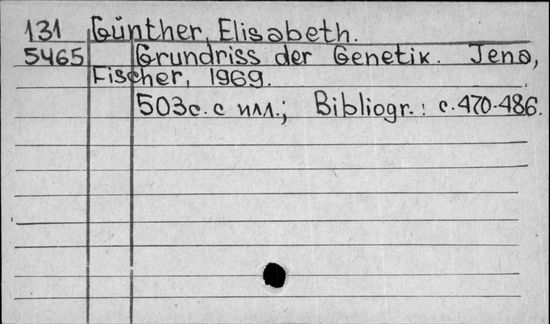 131 Günther, Elisabeth.
5465 Grundriss der Genetik. Jena,
Fischer, 1969.
503с. с илл.; Bibliogr.: с. 470-486.